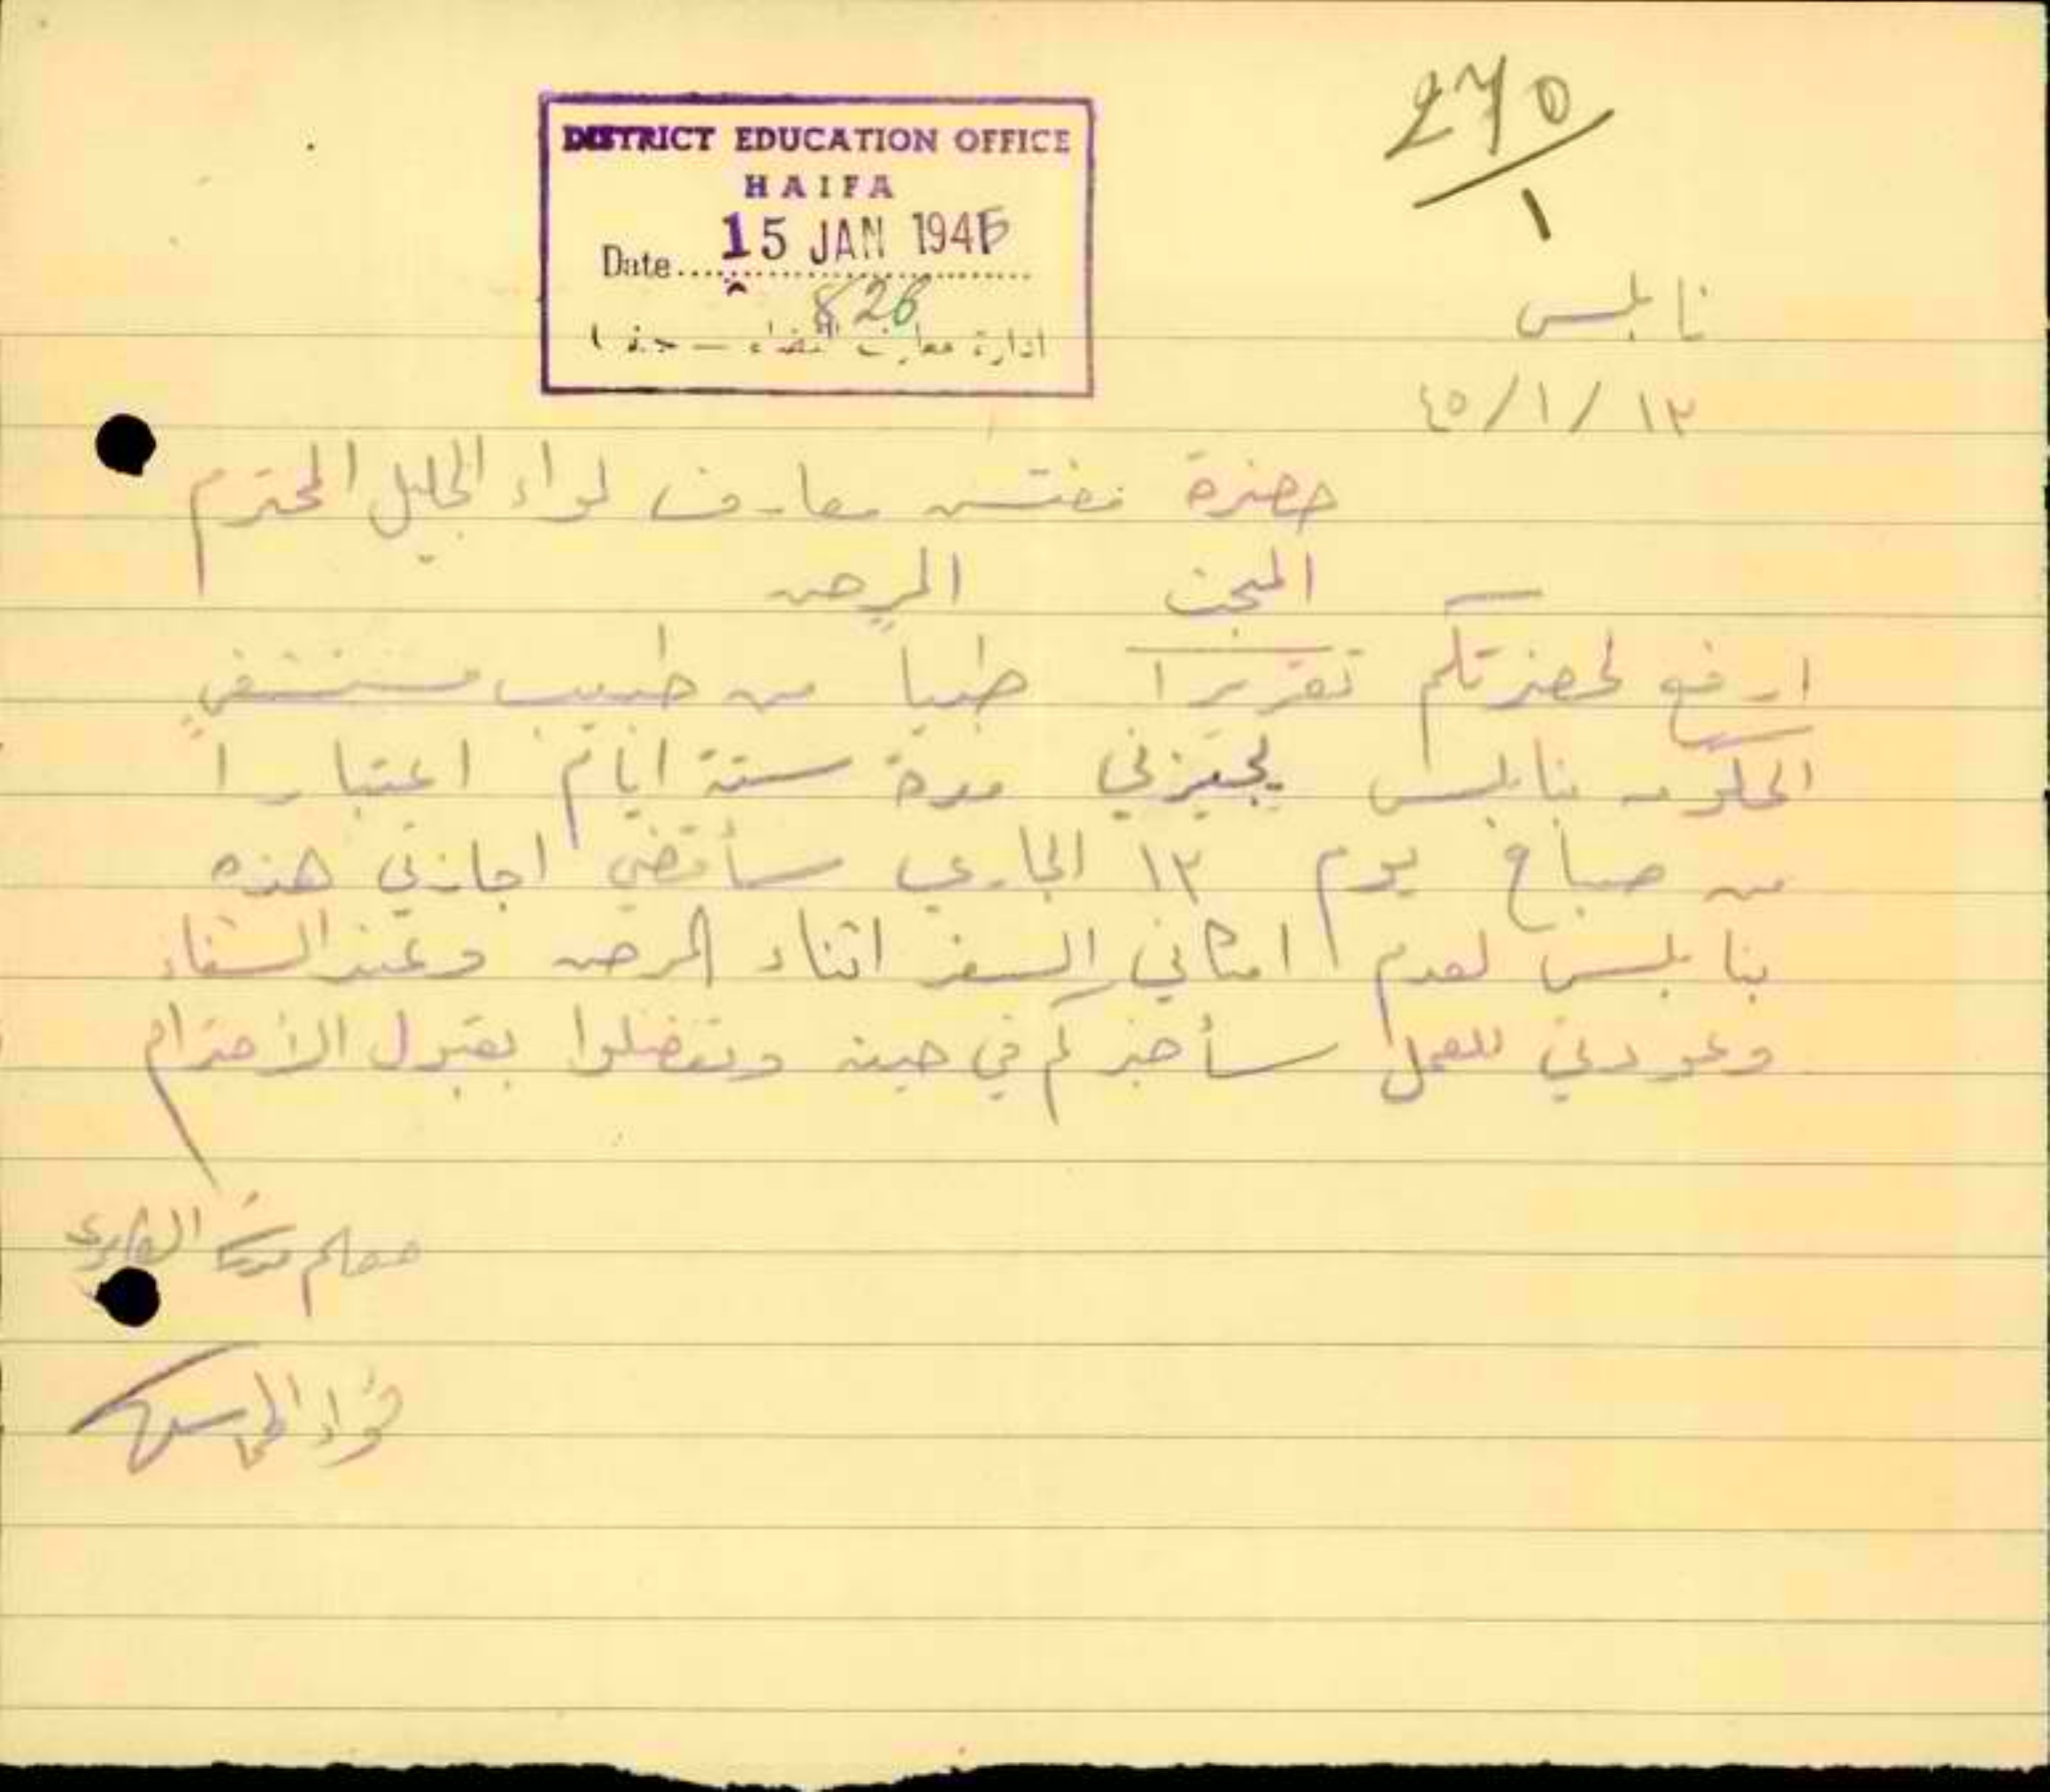 270
١
DISTRICT EDUCATION OFFICE
HAIFA
Date 15 JAN 1945
826
ادارة معارف القضاء — حيفا
نابلس
١٣ / ١ / ٤٥
حضرة مفتش معارف لواء الجليل المحترم
المبحث المرض
ارفع لحضرتكم تقريرا طبيا من طبيب مستشفى
الحكومة بنابلس يجيزني مدة ستة ايام اعتبارا
من صباح يوم ١٣ الجاري سأقضي اجازتي هذه
بنابلس لعدم امكاني السفر اثناء المرض وعند الشفاء
وعودتي للعمل سأخبركم في حينه وتفضلوا بقبول الأحترام
معلم مدرسة
فؤاد